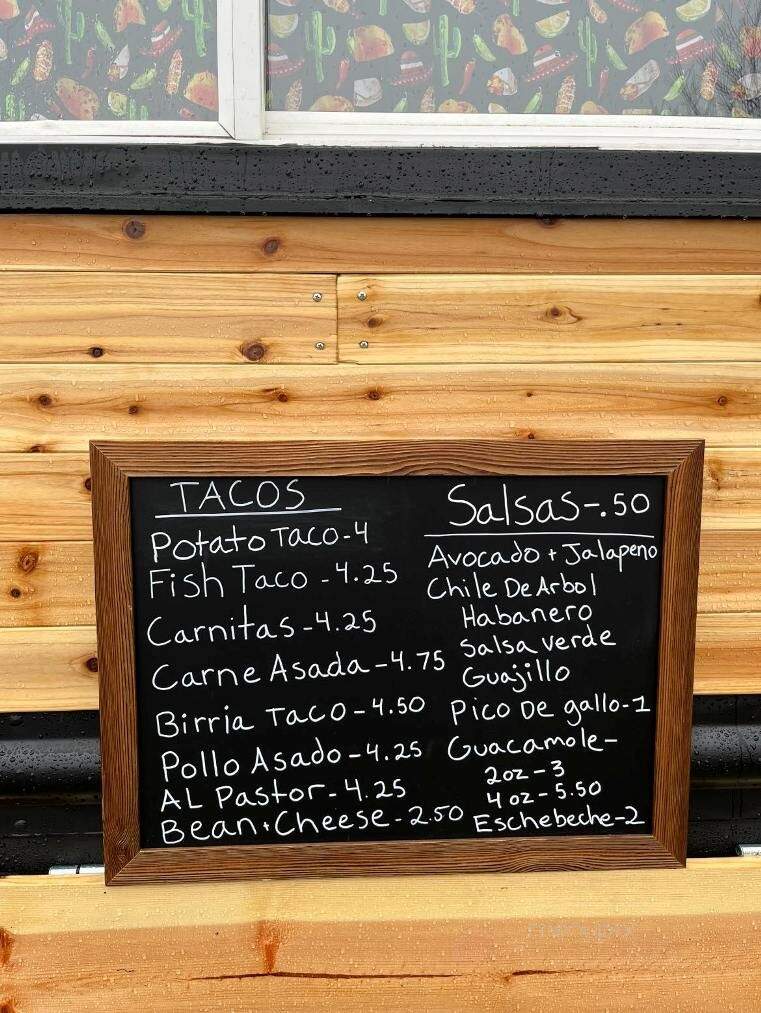 TACOS
Potato Taco-4
Fish Taco -4.25
Carnitas-4.25
Carne Asada-4.75
Birria Taco-4.50
Pollo Asado-4.25
AL Pastor-4.25
Bean+Cheese-2.50
Salsas-.50
Avocado + Jalapeno
Chile De Arbol
Habanero
Salsa verde
Guajillo
Pico De gallo-1
Guacamole-
2oz-3
4oz-5.50
Eschebeche-2